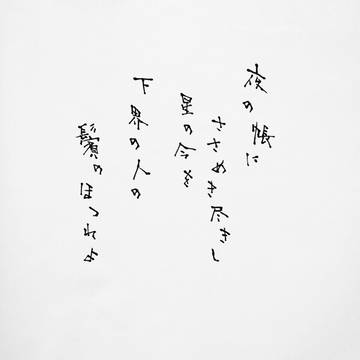 夜の帳に
ささめき尽きし
星の今を
下界の人の
鬢のほつれよ